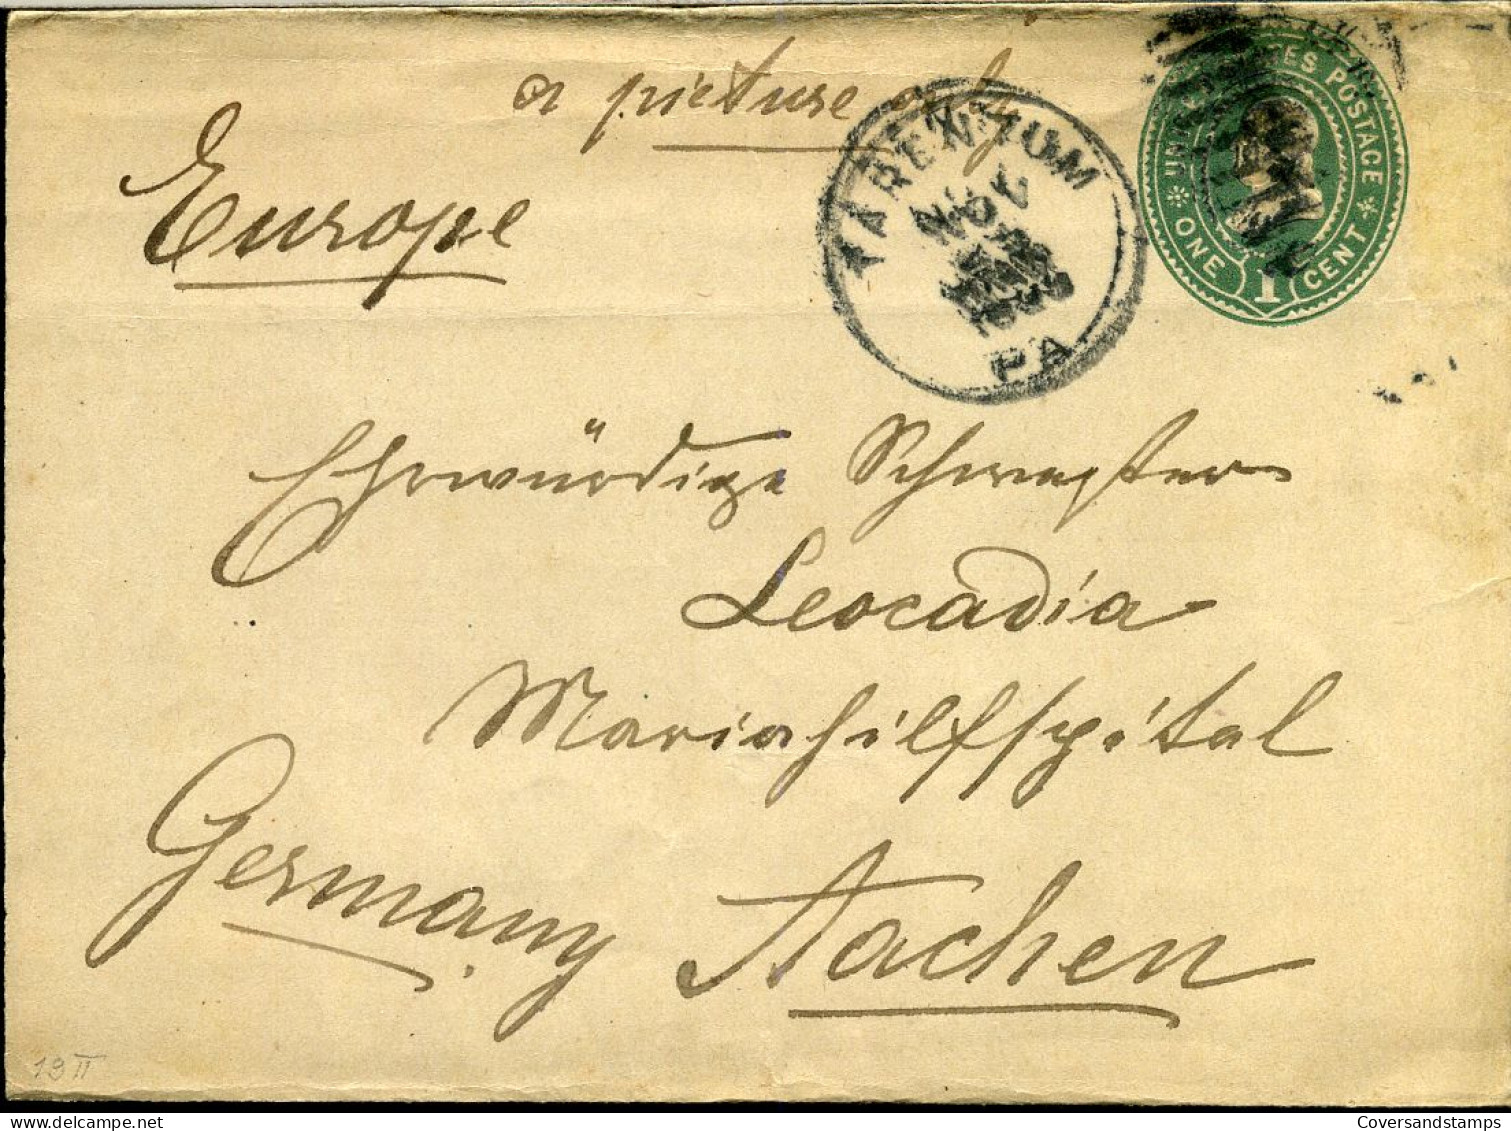 a picture only
Europe
TARENTUM
NOV
PA
UNITED STATES POSTAGE
ONE 1 CENT
Ehrwürdige Schwester
Leocadia
Mariahilfspital
Germany Aachen
13 II
Coversandstamps.com